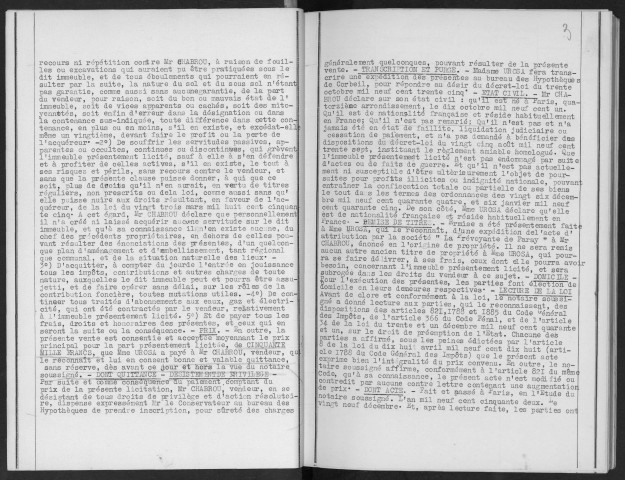 recours ni répétition contre Mr CHABROU, à raison de fouil-
les ou excavations qui auraient pu être pratiquées sous le
dit immeuble, et de tous éboulements qui pourraient en ré-
sulter par la suite, la nature du sol et du sous sol n'étant
pas garantie, comme aussi sans aucune garantie, de la part
du vendeur, pour raison, soit du bon ou mauvais état de l'
immeuble, soit de vices apparents ou cachés, soit des mito-
yennetés, soit enfin d'erreur dans la désignation ou dans
la contenance sus-indiquée, toute différence dans cette con-
tenance, en plus ou en moins, s'il en existe, et excédat-elle
même un vingtième, devant faire le profit ou la perte de
l'acquéreur- -2°) De souffrir les servitudes passives, ap-
parentes ou occultes, continues ou discontinues, qui grèvent
l'immeuble présentement licité, sauf à elle à s'en défendre
et à profiter de celles actives, s'il en existe, le tout à
ses risques et périls, sans recours contre le vendeur, et
sans que la présente clause puisse donner, à qui que ce
soit, plus de droits qu'il n'en aurait, en vertu de titres
réguliers, non prescrits ou de la loi, comme aussi sans qu'
elle puisse nuire aux droits résultant, en faveur de l'ac-
quéreur, de la loi du vingt trois mars mil huit cent cinquan-
te cinq- A cet égard, Mr CHABROU déclare que personnellement
il n'a créé ni laissé acquérir aucune servitude sur le dit
immeuble, et qu'à sa connaissance il n'en existe aucune, du
chef des précédents propriétaires, en dehors de celles pou-
vant résulter des énonciations des présentes, d'un quelcon-
que plan d'aménagement et d'embellissement, tant régional
que communal, et de la situation naturelle des lieux -
3°) D'acquitter, à compter du jour de l'entrée en jouissance
tous les impôts, contributions et autres charges de toute
nature, auxquels le dit immeuble peut et pourra être assu-
jetti, et de faire opérer sans délai, sur les rôles de la
contribution foncière, toutes mutations utiles. -4°) De con-
tinuer tous traités d'abonnements aux eaux, gaz et électri-
cité, qui ont été contractés par le vendeur, relativement
à l'immeuble présentement licité. 5°) Et de payer tous les
frais, droits et honoraires des présentes, et ceux qui en
seront la suite ou la conséquence. - PRIX.- - En outre, la
présente vente est consentie et acceptée moyennant le prix
principal pour la part présentement licitée, de CINQUANTE
MILLE FRANCS, que Mme UROSA a payé à Mr CHABROU, vendeur, qui
le reconnait et lui en consent bonne et valable quittance,
sans réserve, dès avant ce jour et hors la vue du notaire
soussigné. - DONT QUITTANCE - DESISTEMENT ET DISPENSE -
Par suite et comme conséquence du paiement comptant du
prix de la présente licitation, Mr CHABROU, vendeur, en se
désistant de tous droits de privilège et d'action résolutoi-
re, dispense expressément Mr le Conservateur au bureau des
Hypothèques de prendre inscription, pour sûreté des charges
3
généralement quelconques, pouvant résulter de la présente
vente. - TRANSCRIPTION ET PURGE. - Madame UROSA fera trans-
crire une expédition des présentes au bureau des Hypothèques
de Corbeil, pour répondre au désir du décret-loi du trente
octobre mil neuf cent trente cinq- - ETAT CIVIL. - Mr CHA-
BROU déclare sur son état civil : qu'il est né à Paris, qua-
torzième arrondissement, le dix octobre mil neuf cent un.
Qu'il est de nationalité française et réside habituellement
en France; Qu'il n'est pas remarié; Qu'il n'est pas et n'a
jamais été en état de faillite, liquidation judiciaire ou
cessation de paiement, et n'a pas demandé à bénéficier des
dispositions du décret-loi du vingt cinq août mil neuf cent
trente sept, instituant le règlement amiable homologué. Que
l'immeuble présentement licité n'est pas endommagé par suite
d'actes ou de faits de guerre. Et qu'il n'est pas actuelle-
ment ni susceptible d'être ultérieurement l'objet de pour-
suites pour profits illicites ou indignité nationale, pouvant
entraîner la confiscation totale ou partielle de ses biens
le tout dans les termes des ordonnances des vingt six décem-
bre mil neuf cent quarante quatre, et six janvier mil neuf
cent quarante cinq. De son côté, Mme UROSA déclare qu'elle
est de nationalité française et réside habituellement en
France- - REMISE DE TITRES.- -Remise a été présentement faite
à Mme UROSA, qui le reconnait, d'une expédition de l'acte d'
attribution par la société " La Prévoyante de Paray " à Mr
CHABROU, énoncé en l'origine de propriété. Il ne sera remis
aucun autre ancien titre de propriété à Mme UROSA, qui pour-
ra se faire délivrer, à ses frais, ceux dont elle pourra avoir
besoin, concernant l'immeuble présentement licité, et sera
subrogée dans les droits du vendeur à ce sujet. - DOMICILE -
Pour l'exécution des présentes, les parties font élection de
domicile en leurs demeures respectives- - LECTURE DE LA LOI
Avant de clore et conformément à la loi, le notaire soussi-
gné a donné lecture aux parties, qui le reconnaissent, des
dispositions des articles 821,1788 et 1885 du Code Général
des Impôts, de l'article 366 du Code Pénal, et de l'article
34 de la loi du trente et un décembre mil neuf cent quarante
et un, sur le droit de préemption de l'Etat. Chacune des
parties a affirmé, sous les peines édictées par l'article
8 de la loi du dix huit avril mil neuf cent dix huit (arti-
cle 1788 du Code Général des Impôts) que le présent acte
exprime bien l'intégralité du prix convenu. En outre, le no-
taire soussigné affirme, conformément à l'article 821 du même
Code, qu'à sa connaissance, le présent acte n'est modifié ou
contredit par aucune contre lettre contenant une augmentation
de prix. - DONT ACTE. - Fait et passé à Paris, en l'Etude du
notaire soussigné. L'an mil neuf cent cinquante deux. Le
vingt neuf décembre. Et, après lecture faite, les parties ont